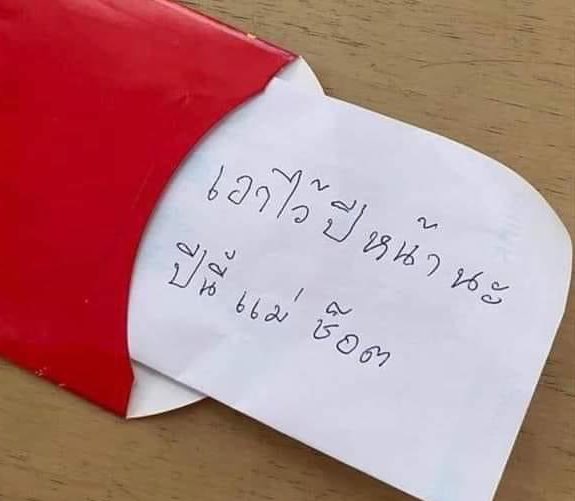 เอาไว้ปีหน้านะ
ปีนี้แม่ ช๊อต